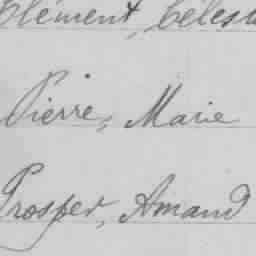 Clément, Célest
Pierre, Marie
Prosper, Amand